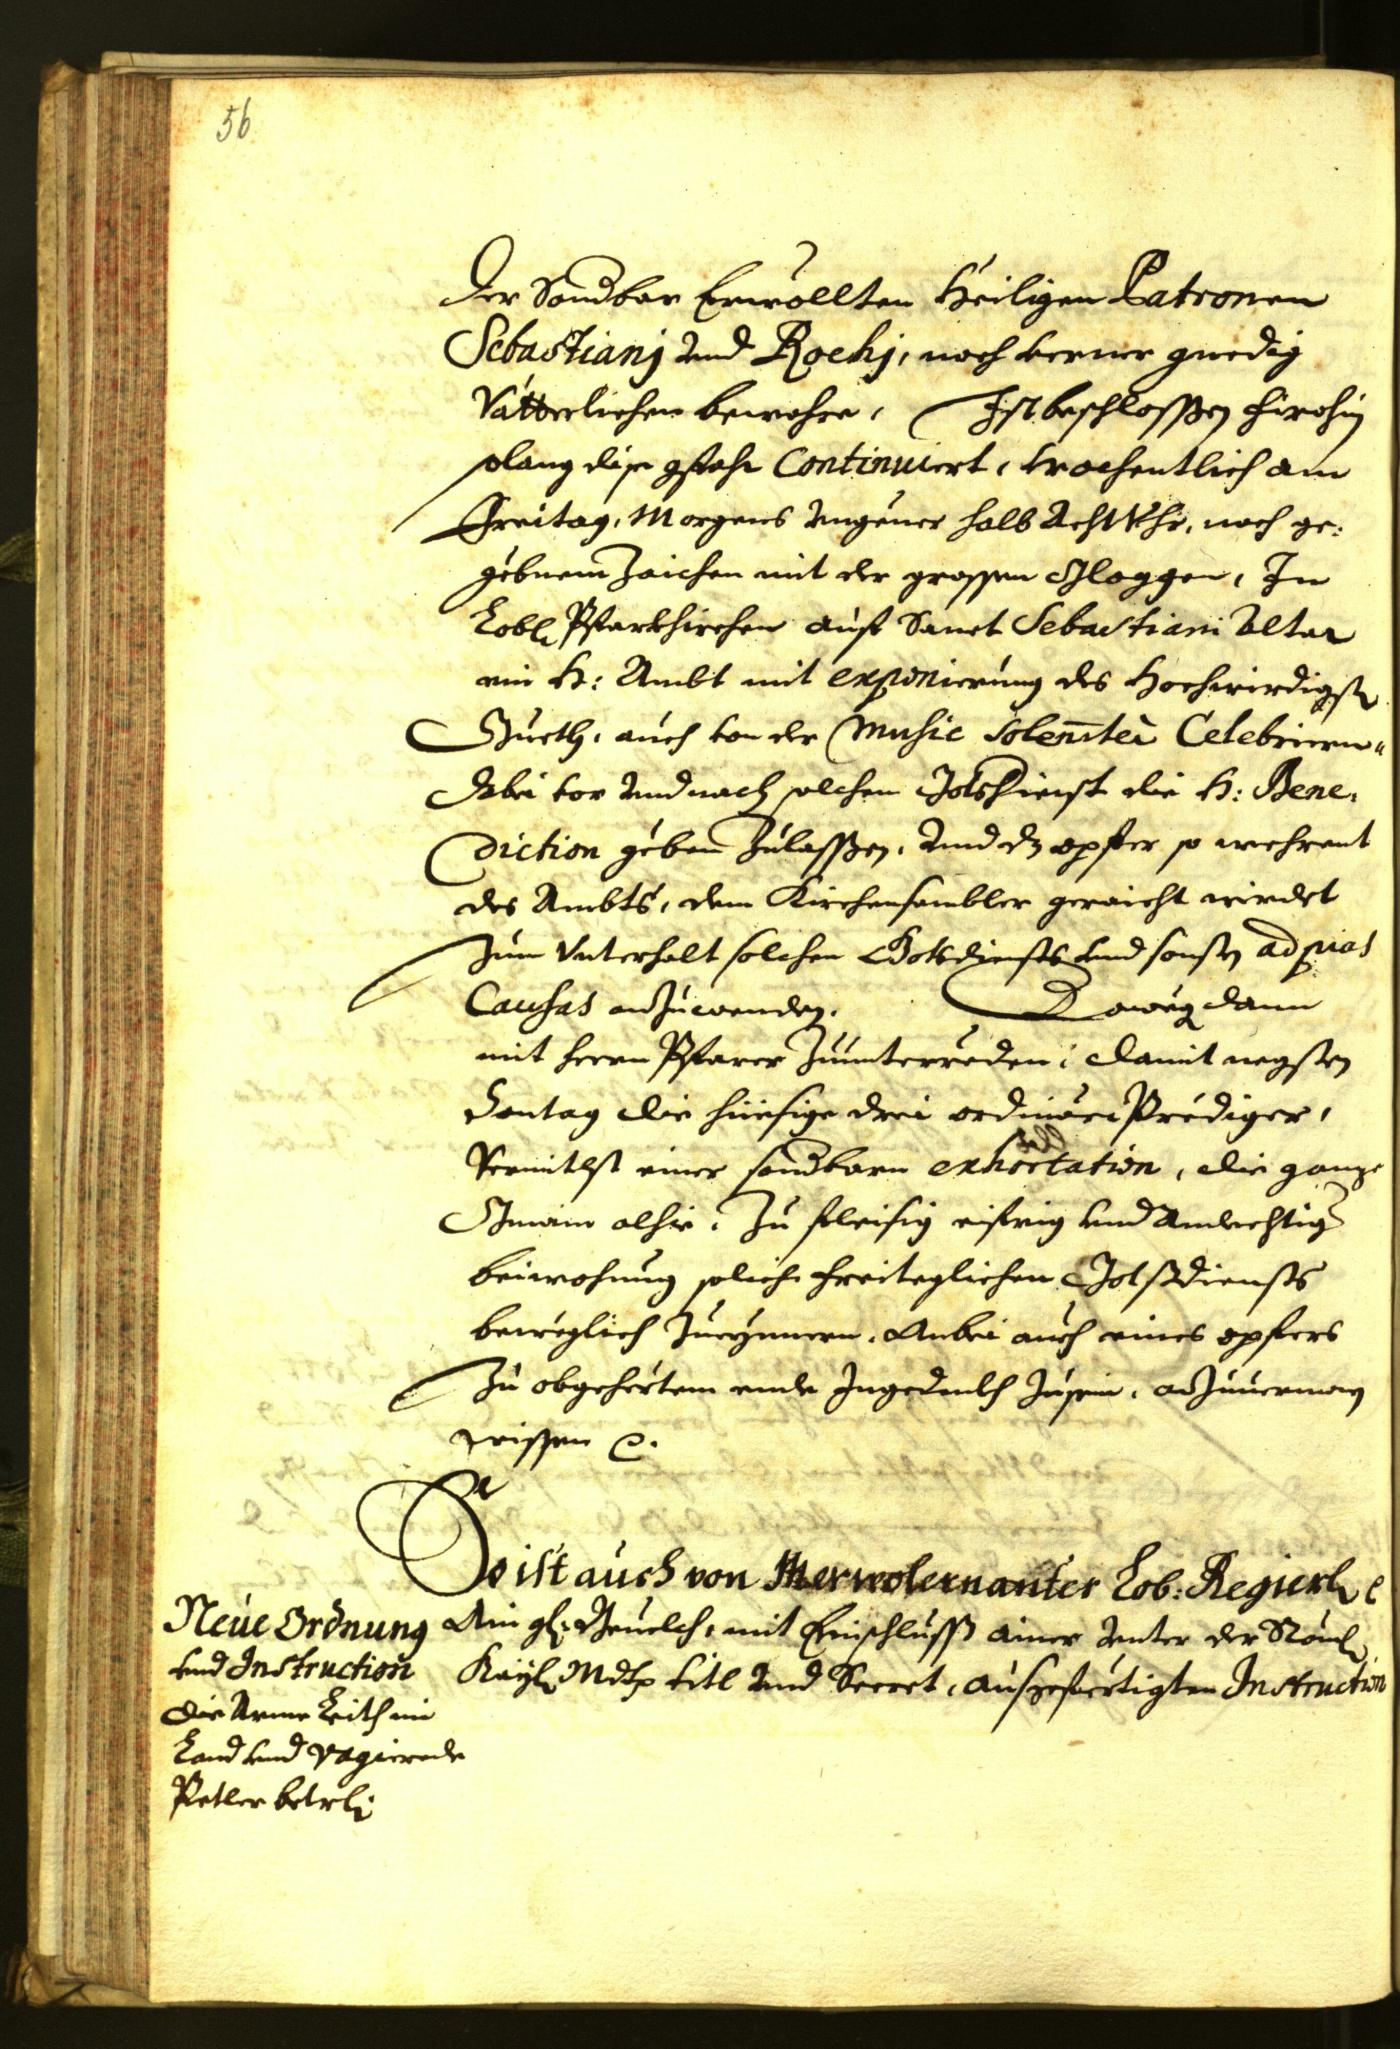 56
der Sondbar Erwöllten Heiligen Patronen
Sebastianj und Rochj, noch verner gnedig
Vätterlichen bewahre, Ist beschlossen hirohin
solang dise gfahr Continuiert, wochentlich am
Freitag, Morgens ungeuer halb Acht Uhr, nach ge:
gebnem Zaichen mit der grossen Gloggen, In
Lobl Pfarrkhirchen auf Sanct Sebastiani Altar
ein H: Ambt mit exponierung des Hochwirdigste
Gueth, auch von der Music solenniter Celebriern
dabei vor und nach solchem Gotsdienst die H: Bene,
diction geben Zulassen, und dz opfer so werent
des Ambts, dem Kirchensambler geraicht wirdet
Zum Unterhalt solchen Gotsdiensts und sonsten ad pias
Causas anZuwenden. dann
mit herrn Pfarrer Zuunterreden, damit negsten
Sontag die hiesige drei ordinari Prediger,
Vermitlst einer sondbarn exhortation, die ganze
Gmain alhie, Zu fleisig eifrig und Andechtig
beiwohnung solich freiteglichen Gotsdiensts
beweglich Zuerjnnern, Anbei auch eines opfers
Zu obgehörtem ende Ingedenkh Zusein,
wissen
So ist auch von Lob: Regierl
Neue Ordnung Ain gl: mit Einschluss ainer unter der Röml
und Instruction Kayl Mdt titl und Secret, Ausgefertigten Instruction
die Arme Leith im
Land und vagierende
Petler betrl